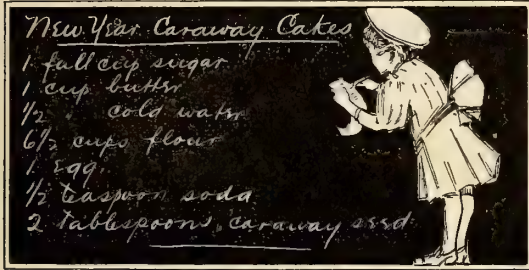 New Year Caraway Cakes
1 full cup sugar
1 cup butter
1/2 " cold water
6 1/2 cups flour
1 egg
1/2 teaspoon soda
2 tablespoons caraway seed